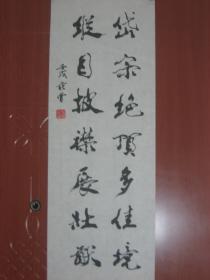 岱宗绝顶多佳境
纵目披襟展壮猷